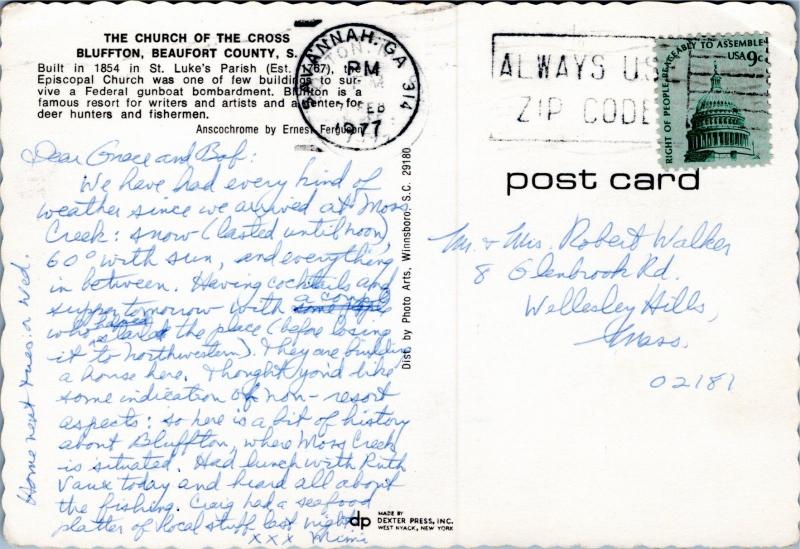 THE CHURCH OF THE CROSS
BLUFFTON, BEAUFORT COUNTY, S.
Built in 1854 in St. Luke's Parish (Est. 1767), the
Episcopal Church was one of few buildings to sur-
vive a Federal gunboat bombardment. Bluffton is a
famous resort for writers and artists and a center for
deer hunters and fishermen.
Anscochrome by Ernest Ferguson
SAVANNAH, GA 314
PM
FEB
1977
ALWAYS US
ZIP CODE
RIGHT OF PEOPLE PEACEABLY TO ASSEMBLE
USA 9c
post card
Dear Grace and Bob:
We have had every kind of
weather since we arrived at Moss
Creek: snow (lasted until noon),
60° with sun, and everything
in between. Having cocktails and
supper tomorrow with a couple
who the place (before losing
it to Northwestern). They are building
a house here. Thought you'd like
some indication of non-resort
aspects: so here is a bit of history
about Bluffton, where Moss Creek
is situated. Had lunch with Ruth
Vaux today and heard all about
the fishing. Craig had a seafood
platter of local stuff last night.
xxx Mimi
Home next Tues. or Wed.
Dist. by Photo Arts, Winnsboro, S.C. 29180
Mr. & Mrs. Robert Walker
8 Glenbrook Rd.
Wellesley Hills,
Mass.
02181
dp
MADE BY
DEXTER PRESS, INC.
WEST NYACK, NEW YORK